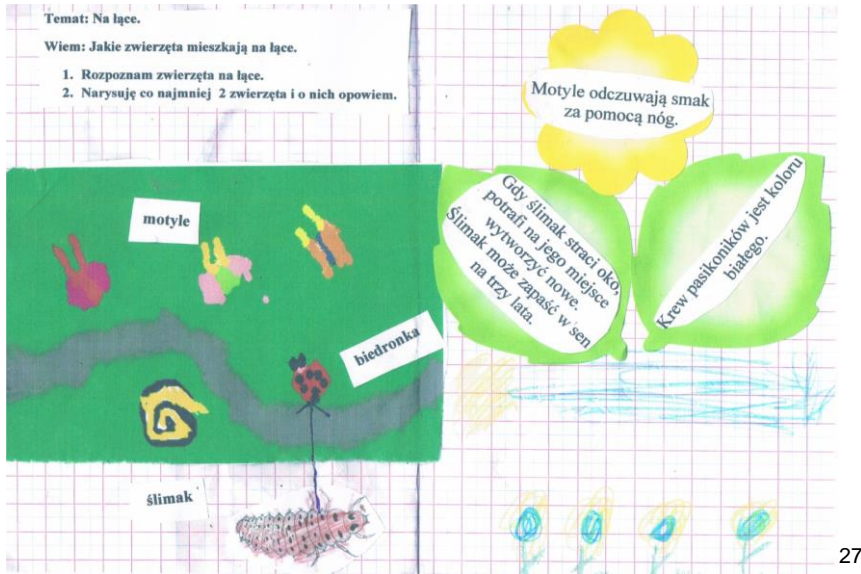 Temat: Na łące.
Wiem: Jakie zwierzęta mieszkają na łące.
1. Rozpoznam zwierzęta na łące.
2. Narysuję co najmniej 2 zwierzęta i o nich opowiem.
Motyle odczuwają smak
za pomocą nóg.
Gdy ślimak straci oko,
potrafi na jego miejsce
wytworzyć nowe.
Ślimak może zapaść w sen
na trzy lata.
Krew pasikoników jest koloru
białego.
motyle
biedronka
ślimak
27